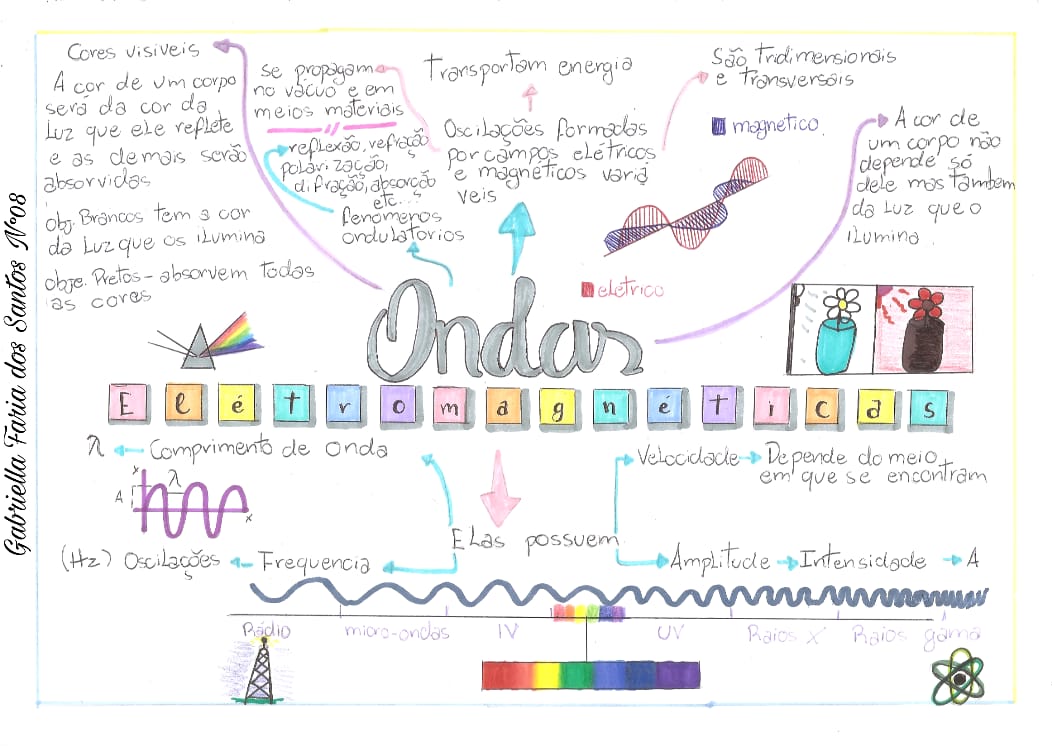 Cores visiveis
A cor de um corpo
será da cor da
Luz que ele reflete
e as demais serão
absorvidas
obj. Brancos tem a cor
da Luz que os ilumina
obje. Pretos - absorvem todas
as cores
se propagam
no vácuo e em
meios materiais
reflexão, refração
polarização,
difração, absorção
etc...
fenômenos
ondulatorios
Transportam energia
Oscilações formadas
por campos elétricos
e magnéticos variá
veis
São Tridimensionais
e Transversais
magnetico
eletrico
A cor de
um corpo não
depende só
dele mas também
da Luz que o
ilumina.
Gabriella Faria dos Santos Nº08
Ondas
Eletromagnéticas
λ Comprimento de onda
x
λ
A
x
(Hz) Oscilações Frequencia
Elas possuem
Velocidade Depende do meio
em que se encontram
Amplitude Intensidade A
Rádio micro-ondas IV UV Raios X Raios gama